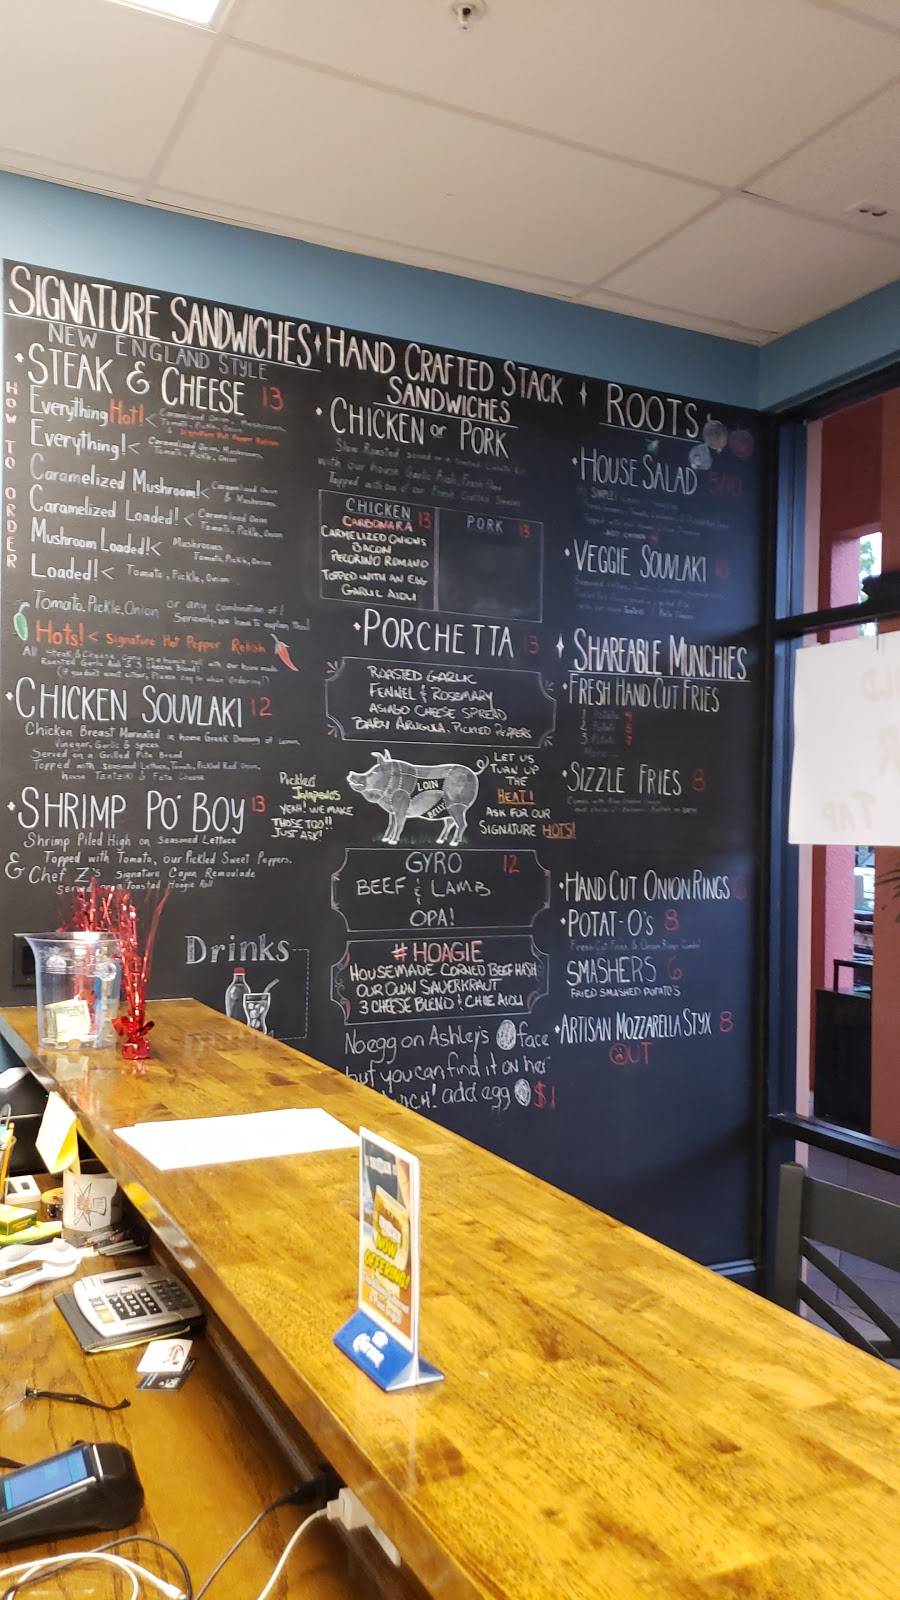 SIGNATURE SANDWICHES
NEW ENGLAND STYLE
STEAK & CHEESE 13
HOW TO ORDER
Everything Hot! < Caramelized Onion, Mushrooms,
Tomato, Pickle, Onion
& Signature Hot Pepper Relish
Everything! < Caramelized Onion, Mushrooms,
Tomato, Pickle, Onion
Caramelized Mushroom! < Caramelized Onion
& Mushrooms
Caramelized Loaded! < Caramelized Onion
Tomato, Pickle, Onion
Mushroom Loaded! < Mushrooms
Tomato, Pickle, Onion
Loaded! < Tomato, Pickle, Onion
Tomato, Pickle, Onion or any combination of!
Seriously, we have to explain this!
Hots! < Signature Hot Pepper Relish
All Steak & Cheese
Roasted Garlic Aioli & 3 Cheese Blend!
CHICKEN SOUVLAKI 12
Chicken Breast Marinated in home Greek Dressing of Lemon,
Vinegar, Garlic & Spices
Served on a Grilled Pita Bread
Topped with Seasoned Lettuce, Tomato, Pickled Red Onion,
house Tzatziki & Feta Cheese
SHRIMP PO' BOY 13
Shrimp Piled High on Seasoned Lettuce
Topped with Tomato, our Pickled Sweet Peppers,
& Chef Z's Signature Cajun Remoulade
served on a Toasted Hoagie Roll
Pickled
Jalapeños
YEAH! WE MAKE
THOSE TOO!!
JUST ASK!
Drinks
HAND CRAFTED STACK
SANDWICHES
CHICKEN or PORK
Slow Roasted
with our house Garlic Aioli, Fresh
Topped with one of our Fresh Crafted
CHICKEN 13
CARBONARA
CARMELIZED ONIONS
BACON
PECORINO ROMANO
TOPPED WITH AN EGG
GARLIC AIOLI
PORK 13
PORCHETTA 13
ROASTED GARLIC
FENNEL & ROSEMARY
ASIAGO CHEESE SPREAD
BABY ARUGULA, PICKLED PEPPERS
LOIN
BELLY
LET US
TURN UP
THE
HEAT!
ASK FOR OUR
SIGNATURE HOTS!
GYRO 12
BEEF & LAMB
OPA!
# HOAGIE
HOUSEMADE CORNED BEEF HASH
OUR OWN SAUERKRAUT
3 CHEESE BLEND & CHIE AIOLI
No egg on Ashley's face
but you can find it on her
add egg $1
ROOTS
HOUSE SALAD
VEGGIE SOUVLAKI
SHAREABLE MUNCHIES
FRESH HAND CUT FRIES
SIZZLE FRIES 8
HAND CUT ONION RINGS
POTAT-O's 8
Fresh Cut Fries & Onion Rings Combo!
SMASHERS 6
FRIED SMASHED POTATO'S
ARTISAN MOZZARELLA STYX 8
OUT
NOW
OFFERING!